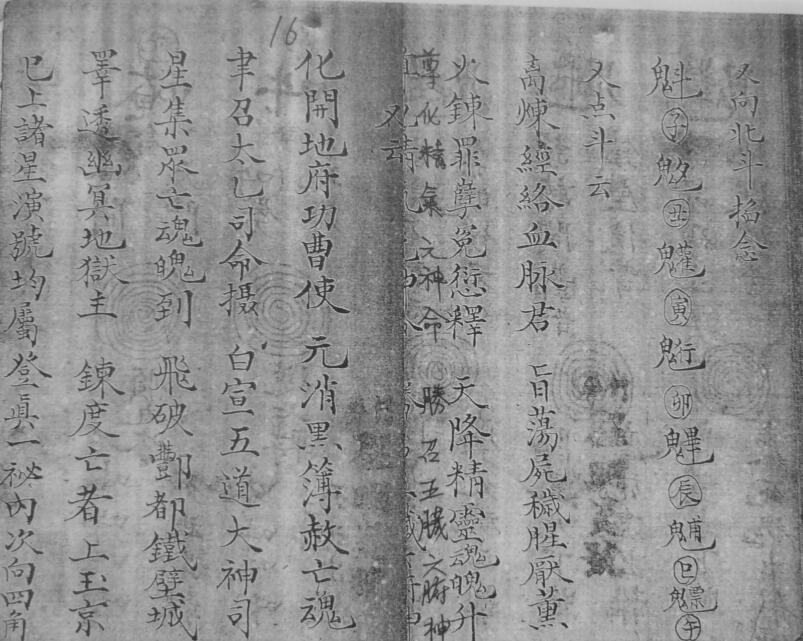 又向北斗掐念
魁子䰢丑䰤寅魓卯魓辰䰷巳魒午
又点斗云
高煉經絡血脉君　旨蕩屍穢腥厭薰
火鍊罪孽冤愆釋　天降精靈魂魄升
尊化精氣六神命　勝召五臟六腑神
又云
16
化開地府功曹使　元消黑簿赦亡魂
聿召太乙司命摄　白宣五道大神司
星集眾亡魂魄到　飛破酆都鐵壁城
睪透幽冥地獄主　鍊度亡者上玉京
巳上諸星演號均屬登真一祕內次向四角